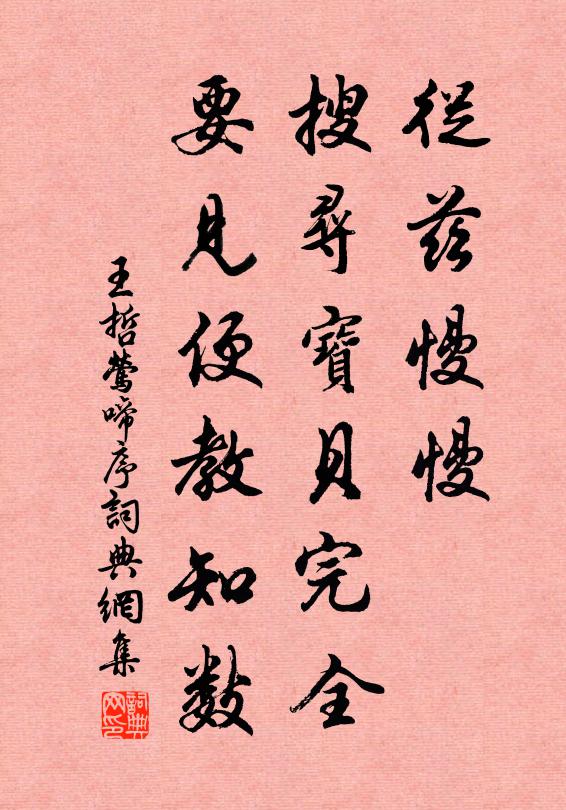 從茲慢慢
搜尋寶貝完全
要見便教知數
王哲鶯啼序詞典網集
詞典网印